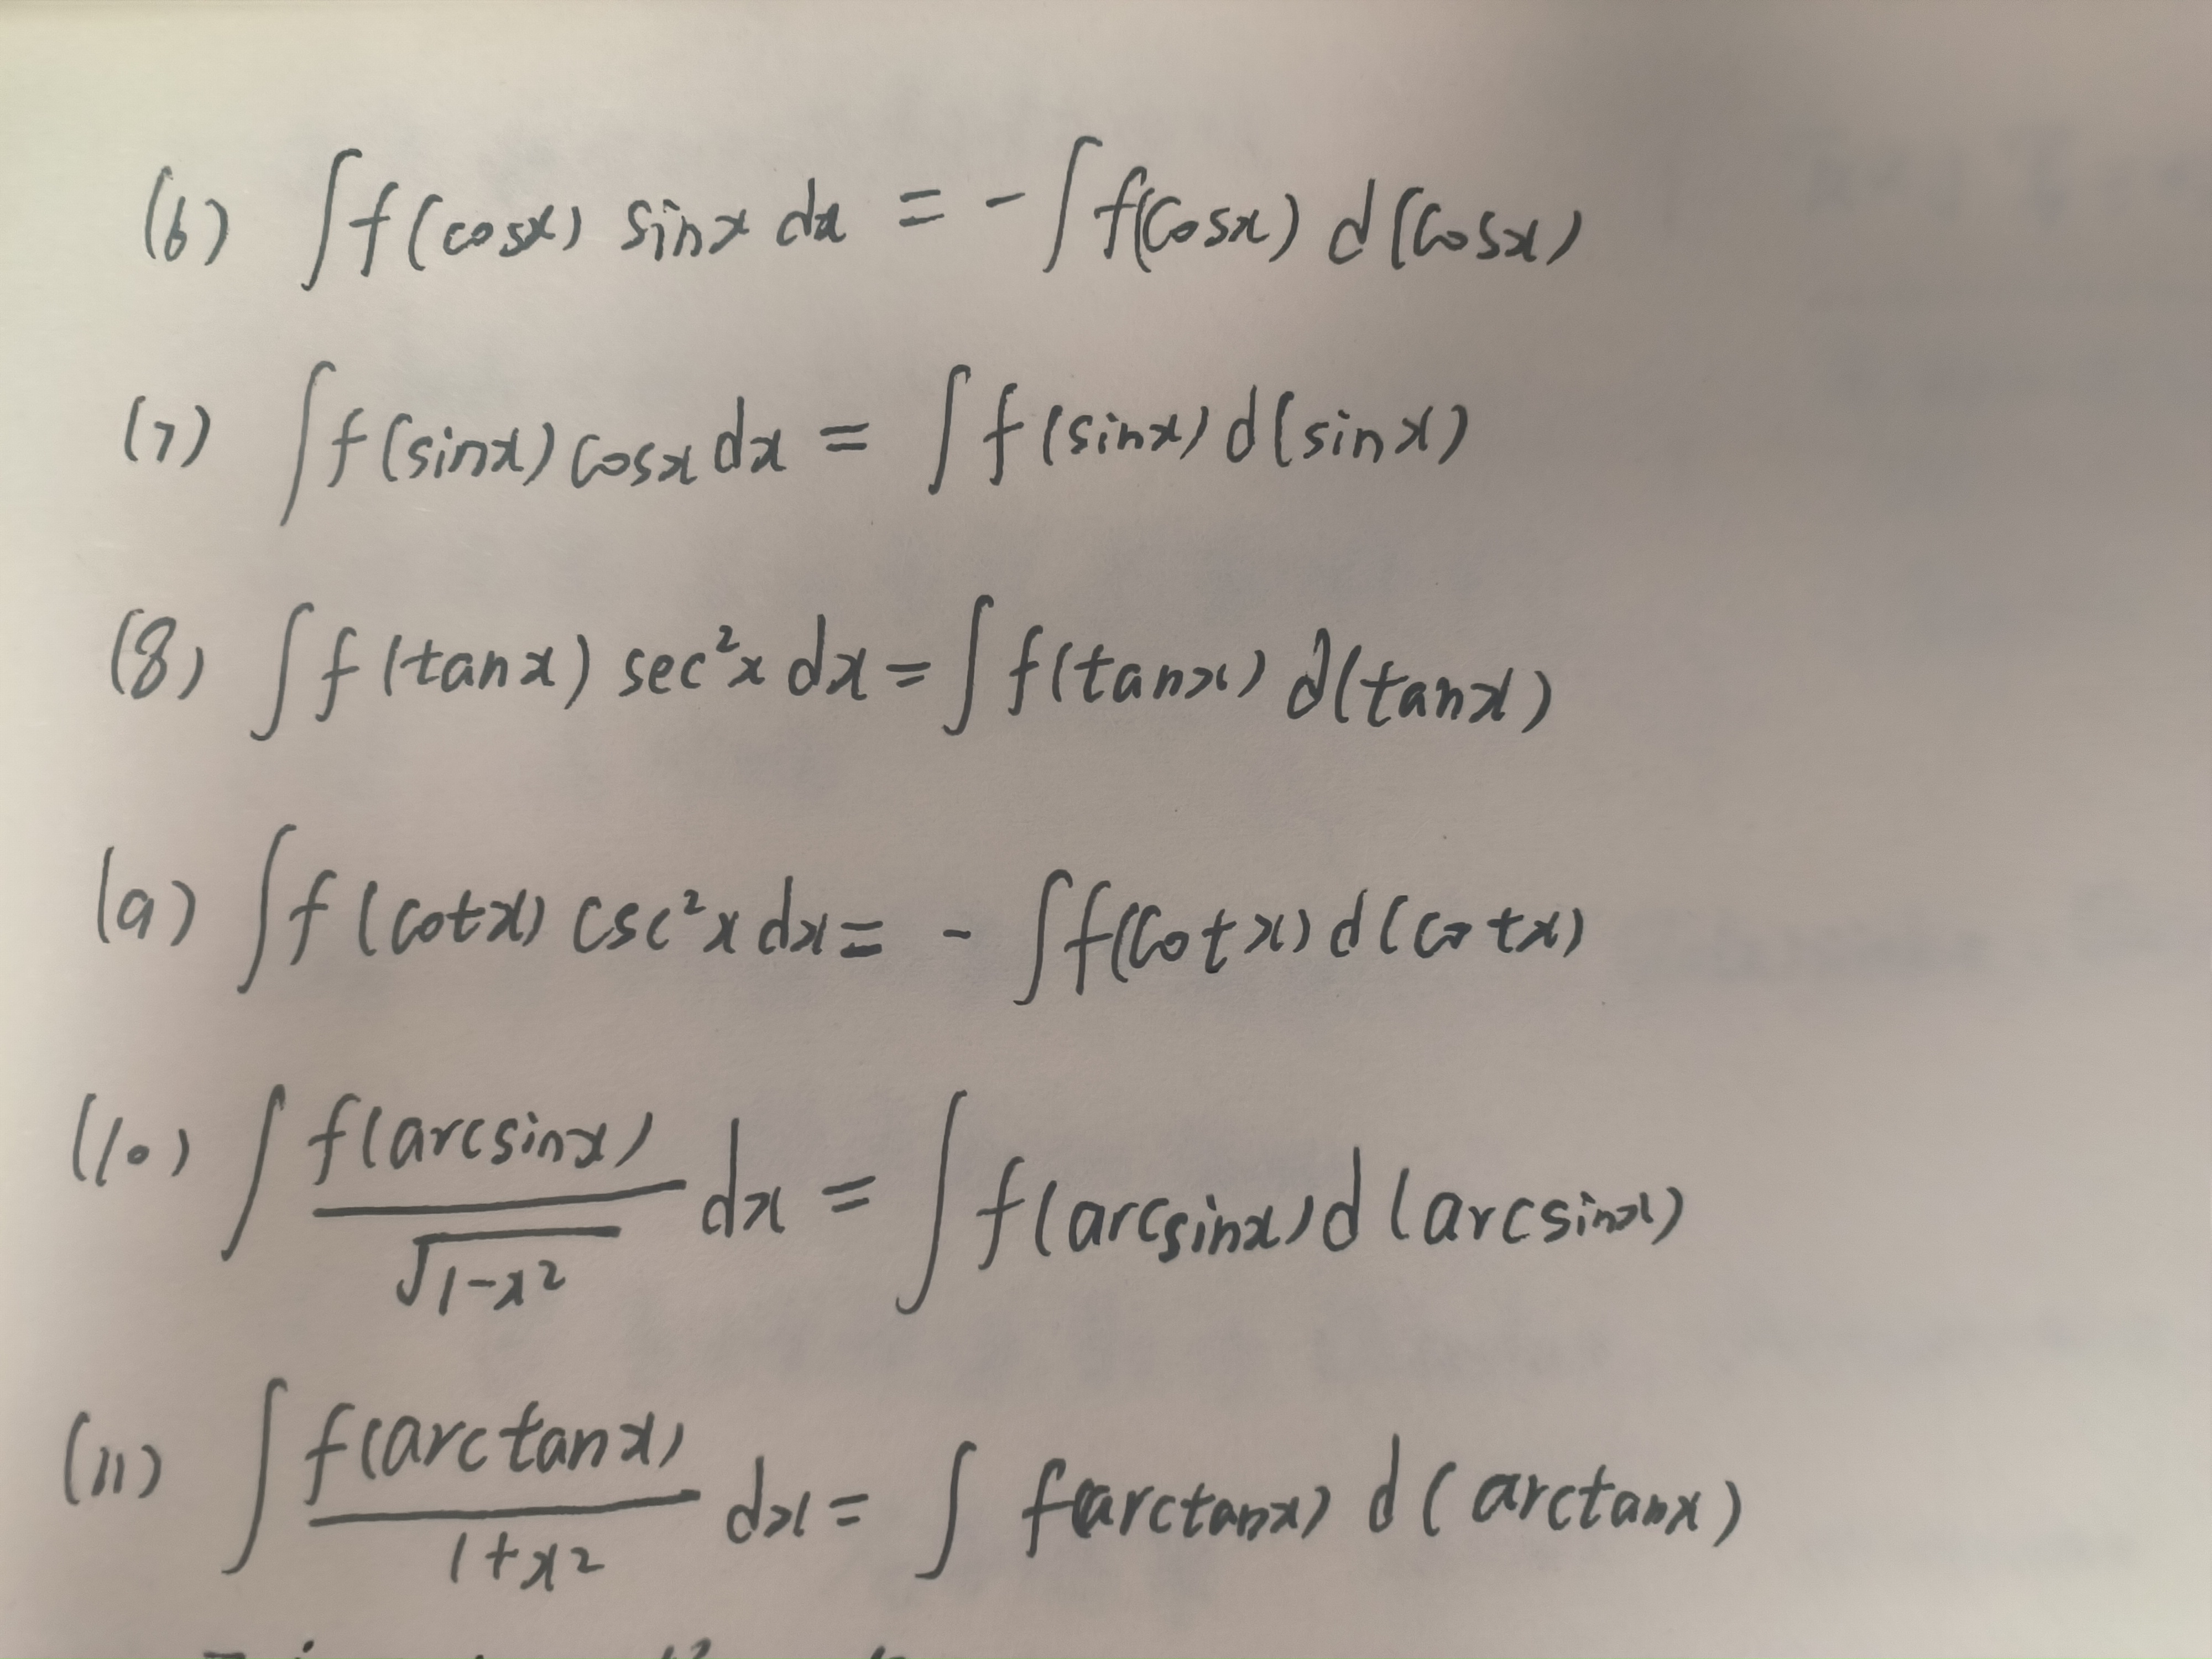 (6) ∫f(cosx) sinx dx = -∫f(cosx) d(cosx)
(7) ∫f(sinx) cosx dx = ∫f(sinx) d(sinx)
(8) ∫f(tanx) sec²x dx = ∫f(tanx) d(tanx)
(9) ∫f(cotx) csc²x dx = -∫f(cotx) d(cotx)
(10) ∫ f(arcsinx)/√(1-x²) dx = ∫f(arcsinx) d(arcsinx)
(11) ∫ f(arctanx)/(1+x²) dx = ∫ f(arctanx) d(arctanx)